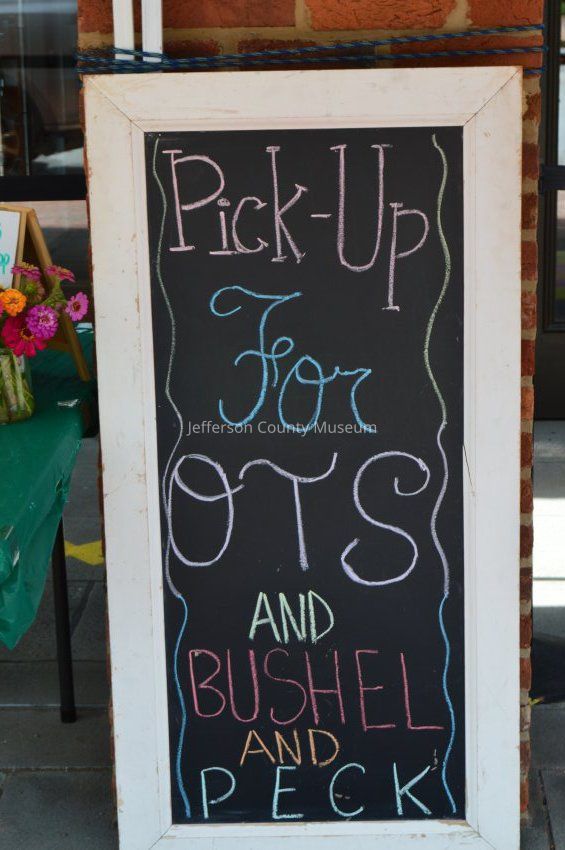 Pick-Up
For
Jefferson County Museum
OTS
AND
BUSHEL
AND
PECK